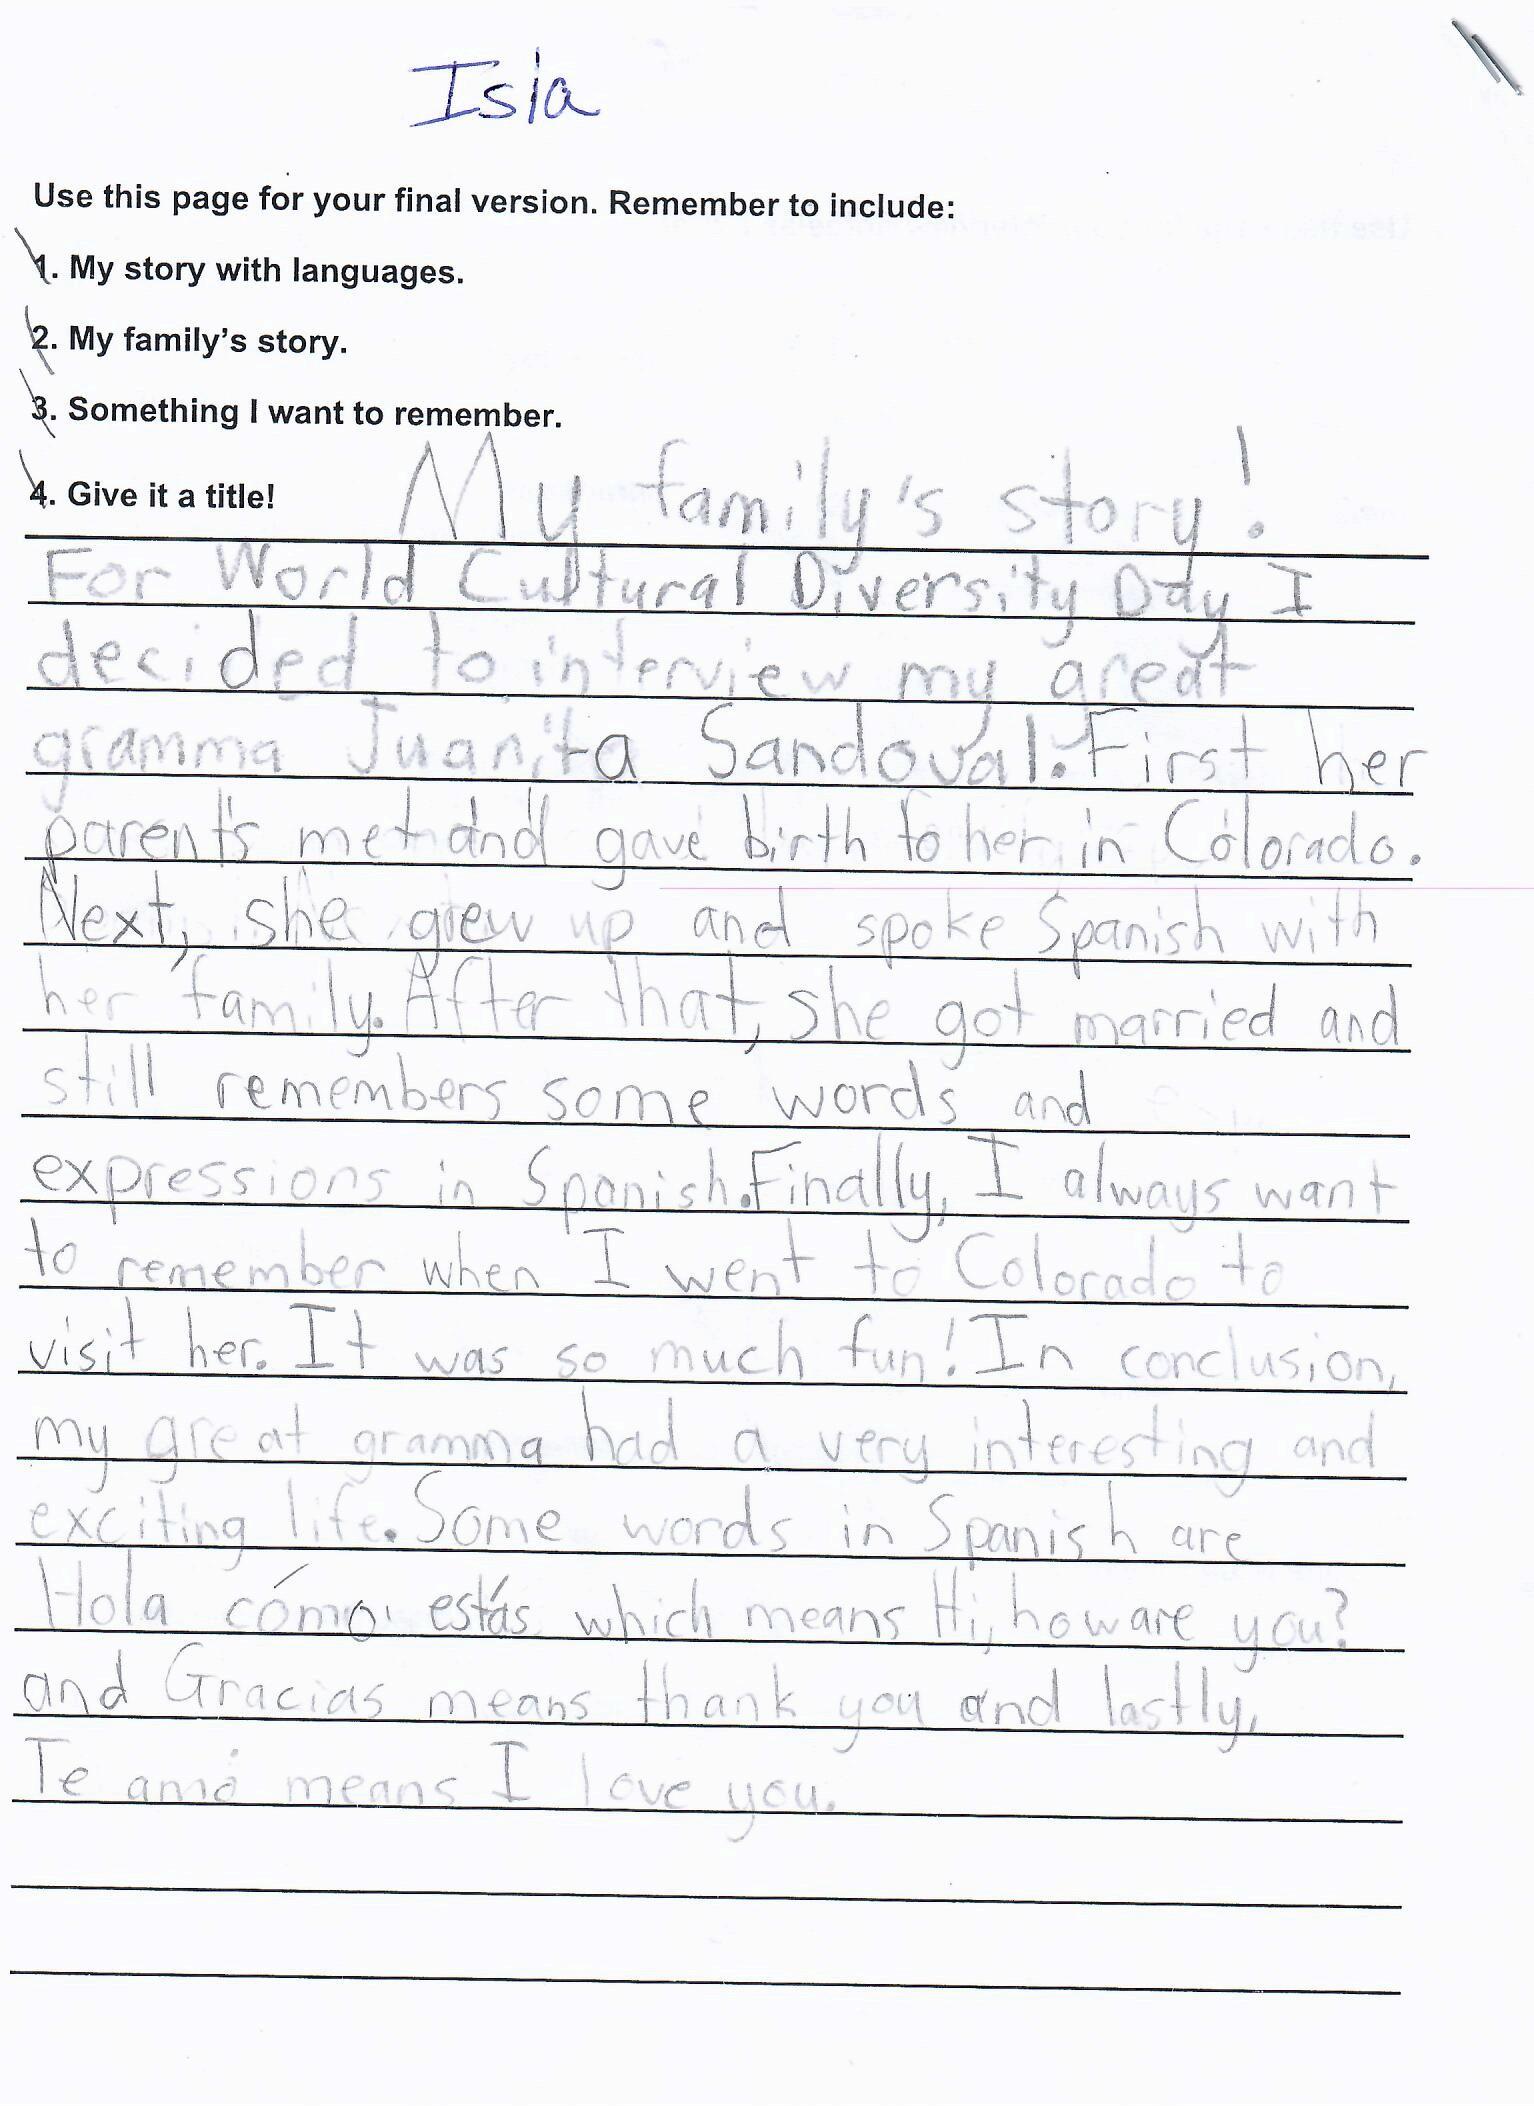 Isla
Use this page for your final version. Remember to include:
1. My story with languages.
2. My family's story.
3. Something I want to remember.
4. Give it a title!
My family's story!
For World Cultural Diversity Day I
decided to interview my great
gramma Juanita Sandoval. First her
parent's met and gave birth to her in Colorado.
Next, she grew up and spoke Spanish with
her family. After that, she got married and
still remembers some words and
expressions in Spanish. Finally, I always want
to remember when I went to Colorado to
visit her. It was so much fun! In conclusion,
my great gramma had a very interesting and
exciting life. Some words in Spanish are
Hola cómo estás which means Hi, how are you?
and Gracias means thank you and lastly,
Te amo means I love you.